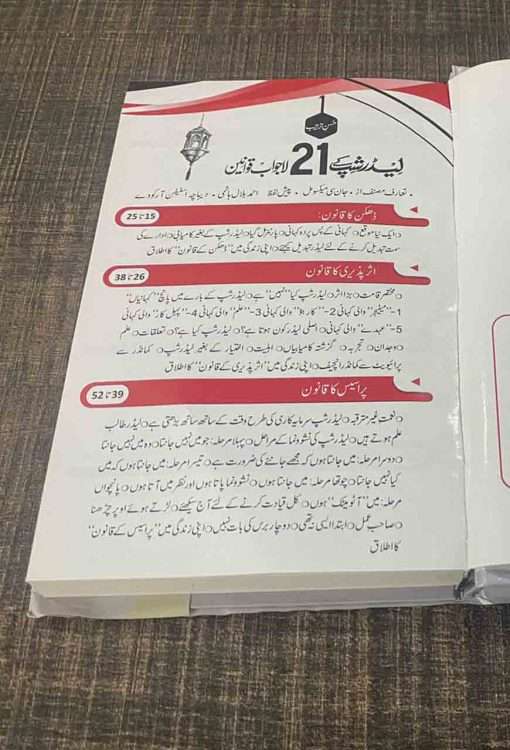 حسن ترتیب
لیڈرشپ کے 21 لاجواب قوانین
• تعارف مصنف از: جان سی میکسویل • پیش لفظ احمد بلال ہاشمی • دیباچہ اسٹیفن آر کووے
ڈھکن کا قانون: 15 تا 25
○ ایک نیا موقع ○ کہانی کے پس پردہ کہانی ○ پارٹنر مل گیا ○ لیڈرشپ کے بغیر کامیابی ○ ادارے کی
سمت تبدیل کرنے کے لئے لیڈر تبدیل کیجئے ○ اپنی زندگی میں ''ڈھکن کے قانون'' کا اطلاق
اثر پذیری کا قانون 26 تا 38
○ مختصر قامت: بڑا اثر ○ لیڈرشپ کیا ''نہیں'' ہے ○ لیڈرشپ کے بارے میں پانچ ''کہانیاں''
1- ''مینیجر'' والی کہانی 2- ''کارجُو'' والی کہانی 3- ''علم'' والی کہانی 4- ''پہل کار'' والی کہانی
5- ''عہدے'' والی کہانی ○ اصلی لیڈر کون ہوتا ہے؟ ○ لیڈرشپ کیا ہے؟ ○ تعلقات ○ علم
○ وجدان ○ تجربہ ○ گزشتہ کامیابیاں ○ اہلیت ○ اختیار کے بغیر لیڈرشپ ○ کمانڈر سے
پرائیویٹ سے کمانڈر انچیف ○ اپنی زندگی میں ''اثر پذیری کے قانون'' کا اطلاق
پراسیس کا قانون 39 تا 52
○ نعمت غیر مترقبہ ○ لیڈرشپ سرمایہ کاری کی طرح وقت کے ساتھ ساتھ بڑھتی ہے ○ لیڈر طالب
علم ہوتے ہیں ○ لیڈرشپ کی نشوونما کے مراحل ○ پہلا مرحلہ: جو میں نہیں جانتا ○ وہ میں نہیں جانتا
○ دوسرا مرحلہ: میں جانتا ہوں کہ مجھے جاننے کی ضرورت ہے ○ تیسرا مرحلہ: میں جانتا ہوں کہ میں
کیا نہیں جانتا ○ چوتھا مرحلہ: میں جانتا ہوں ○ نشوونما پاتا ہوں اور نظر میں آتا ہوں ○ پانچواں
مرحلہ: میں ''آٹو میٹک'' ہوں ○ کل قیادت کرنے کے لئے آج سیکھئے ○ لڑتے ہوئے اوپر چڑھنا
○ صاحب عمل ○ ابتدا ایسی نہ تھی ○ دو چار برس کی بات نہیں ○ اپنی زندگی میں ''پراسیس کے قانون''
کا اطلاق